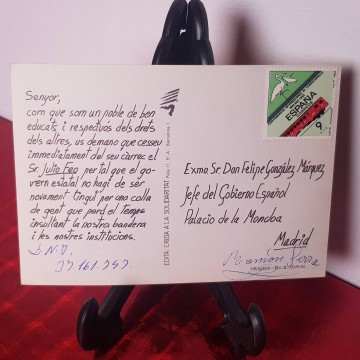 Senyor,
com que som un poble de ben
educats i respectuós dels drets
dels altres, us demano que cesseu
immediatament del seu càrrec el
Sr. Julio Feo per tal que el go-
vern estatal no hagi de ser
novament tingut per una colla
de gent que perd el temps
insultant la nostra bandera
i les nostres institucions.
D.N.I.
37.161.747.
EDITA: CRIDA A LA SOLIDARITAT
ESPAÑA
9
Exmo Sr. Don Felipe González Márquez
Jefe del Gobierno Español
Palacio de la Moncloa
Madrid